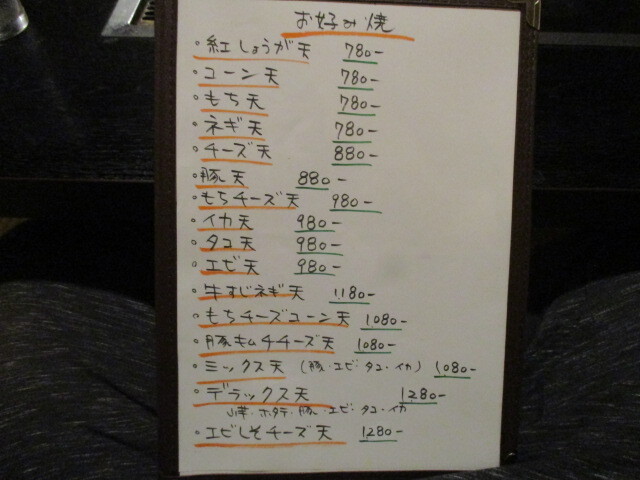 お好み焼
・紅しょうが天 780-
・コーン天 780-
・もち天 780-
・ネギ天 780-
・チーズ天 880-
・豚天 880-
・もちチーズ天 980-
・イカ天 980-
・タコ天 980-
・エビ天 980-
・牛すじネギ天 1,180-
・もちチーズコーン天 1,080-
・豚キムチチーズ天 1,080-
・ミックス天 (豚・エビ・タコ・イカ) 1,080-
・デラックス天 1,280-
山芋・ホタテ・豚・エビ・タコ・イカ
・エビしそチーズ天 1,280-